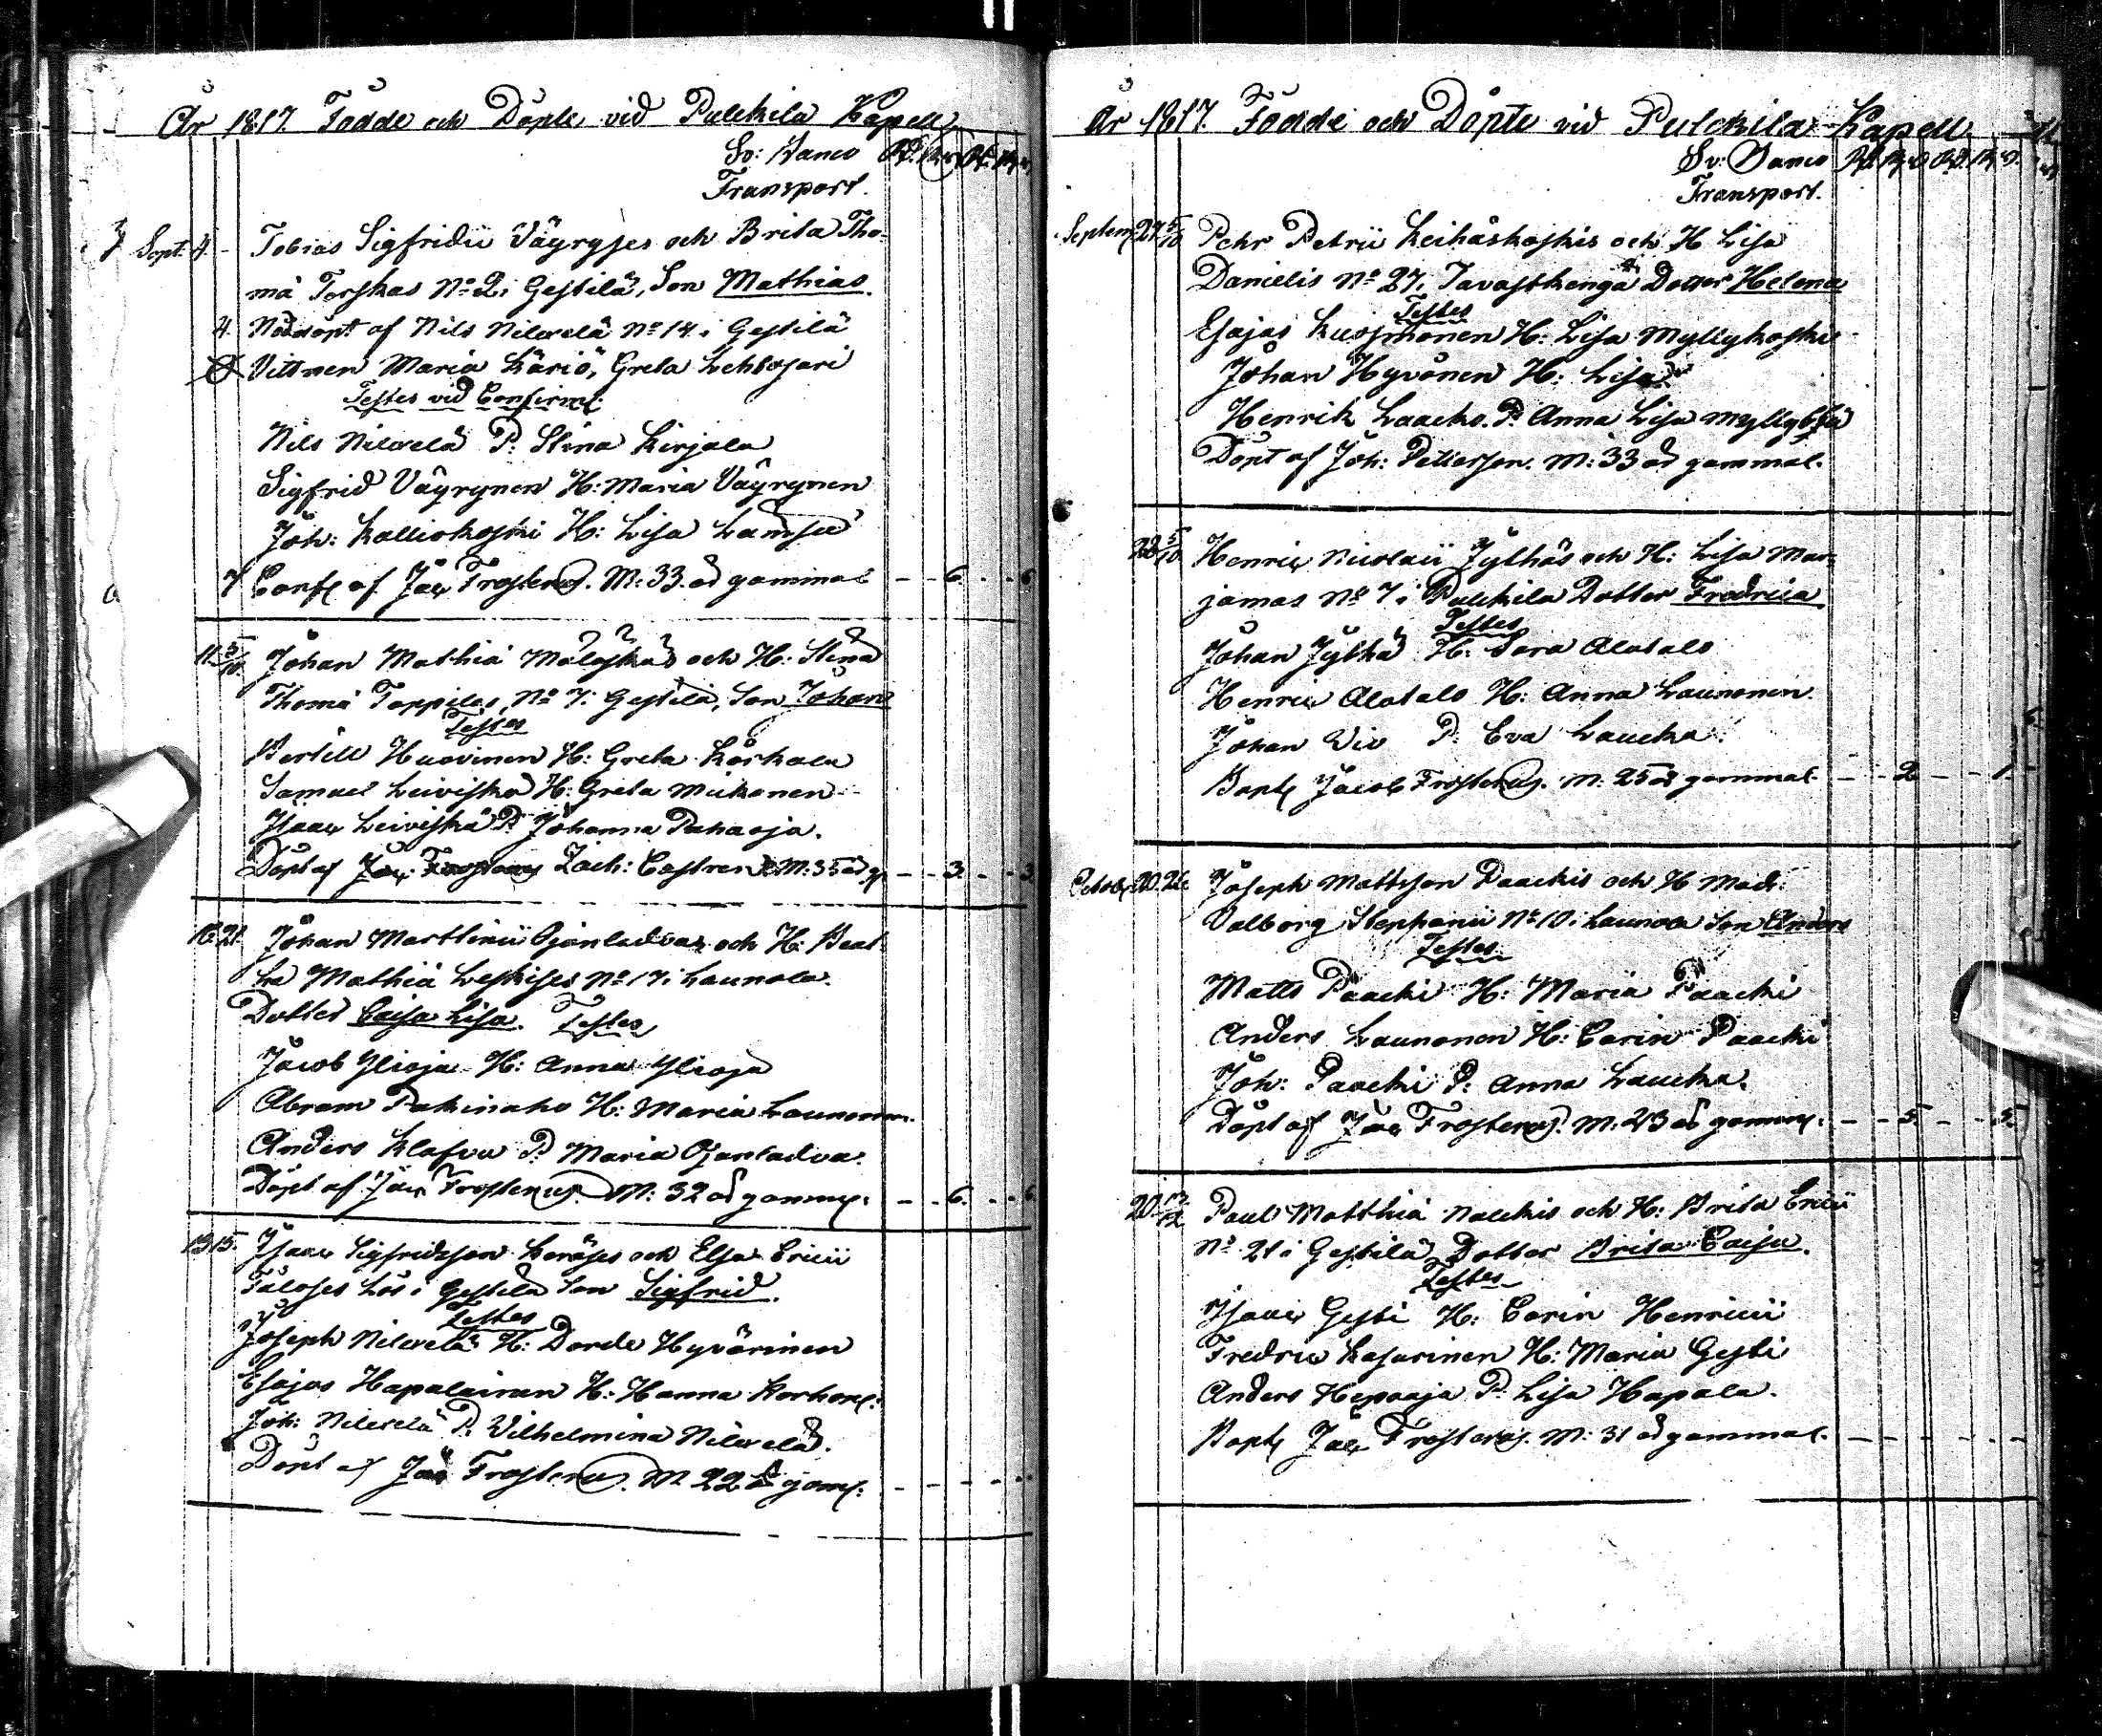 År 1817. Födde och Döpte vid Pulckila Kapell
Sv: Banco Rd.
Transport.
Sept. 4. Tobias Sigfridii Väyryses och Brita Tho-
mä Torskas No 2 i Gestilä, Son Mathias.
4. Nöddöpt af Nils Nilevelä No 14 i Gestilä
Vittnen Maria Käriö, Greta Lehtosari
Testes vid Confirm:
Nils Nilevelä P: Stina Kirjala
Sigfrid Väyrynen H: Maria Väyrynen
Joh: Kalliokoski H: Lisa Lamsu
7 Conf af Jac Frosterus. M: 33 år gammal - - 6. - - 6
11. 5/10. Johan Mathiä Mäläskäs och H: Stina
Thomä Toppilas, No 7 i Gestilä, Son Johan
Testes
Bertill Huovinen H: Greta Kärkala
Samuel Leiviskä H: Greta Mickonen
Isaac Leiviskä P: Johanna Pahaoja.
Döpt af Zach: Castren M: 35 år g. - - 3. - - 3
16. 21. Johan Marttinii Ojanladvas och H: Beat-
ha Mathiä Leskises No 17 i Launola.
Dotter Caisa Lisa. Testes
Jacob Ylioja H: Anna Ylioja
Abram Pakinaho H: Maria Launonen.
Anders Klasu P: Maria Ojanladva.
Döpt af Jac Frosterus. M: 32 år gamml: - - 6. - - 6
13 15. Isaac Sigfridsson Keräses och Elsa Ericii
Tuloses Lös i Gestilä Son Sigfrid.
Testes
Joseph Nilevelä H: Dorde Hyvärinen
Esajas Hapalainen H: Hanna Korhon:
Joh: Nilevelä P. Vilhelmina Nilevelä.
Döpt af Jac Frosterus. M 22 år gam:
År 1817. Födde och Döpte vid Pulckila Kapell
Sv: Banco
Transport.
Septem. 27. 5/10 Pehr Petrii Keihäskoskis och H Lisa
Danielis No 27. Tavastkenga Dotter Helena
Testes
Esajas Kuosmonen H: Lisa Myllykoski
Johan Hyvönen H: Lisa
Henrik Laacko. P: Anna Lisa
Döpt af Joh: Petterson. M: 33 år gammal.
28 5/10. Henric Nicolaii Jylhäs och H: Lisa Mar-
jamas No 7 i Pulckila Dotter Fredrica
Testes
Johan Jylhä H: Sara Alatalo
Henric Alatalo H: Anna Launonen
Johan Vio P: Eva Laucka
Bapt Jacob Frosterus. M. 25 år gammal - - 2 - - 1.
October 20. 26. Joseph Mattsson Paackis och H Mad:
Valborg Stephanii No 10. Launola Son Anders
Testes
Matts Paacki H: Maria Paacki
Anders Launonen H: Carin Paacki
Joh: Paacki P: Anna Laucka.
Döpt af Jac Frosterus. M: 23 år gamml: - - 5. - - 5.
20. 12/12 Paul Matthiä Nalckis och H: Brita Ericii
No 21 i Gestilä Dotter Brita Caisa.
Testes
Isaac Gesti H: Carin Henricii
Fredric Kasurinen H: Maria Gesti
Anders Hepaoja P: Lisa Hapala.
Bapt Jac Frosterus. M: 31 år gammal.